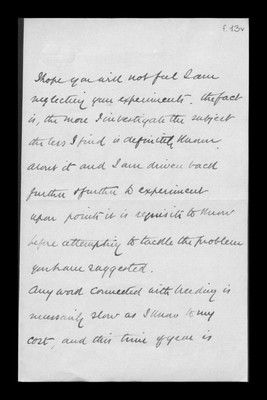 f.13v
I hope you will not feel I am
neglecting your experiments. The fact
is, the more I investigate the subject
the less I find is definitely known
about it and I am driven back
further & further to experiment
upon points it is requisite to know
before attempting to tackle the problem
you have suggested.
Any word connected with breeding is
necessarily slow as I know to my
cost, and this time of year is